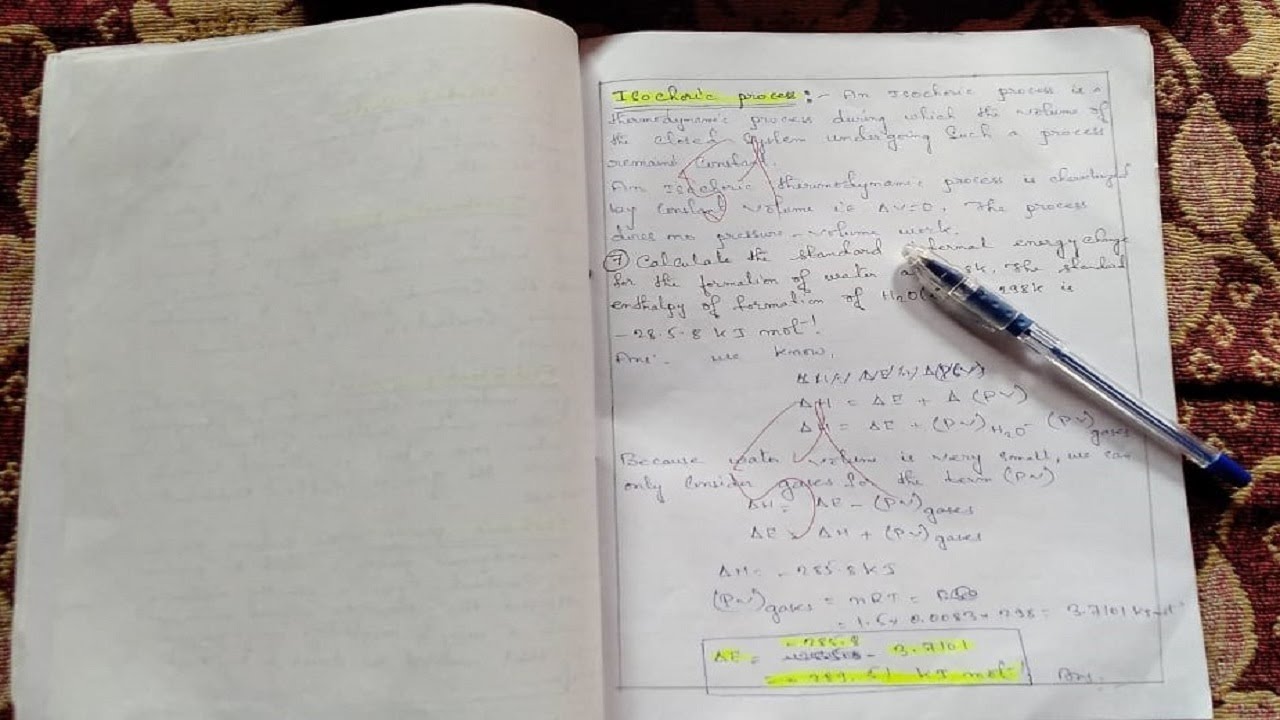 Isochoric process :- An Isochoric process is a
thermodynamic process during which the volume of
the closed system undergoing such a process
remains constant.
An Isochoric thermodynamic process is
by constant volume i.e ΔV=0. The process
does no pressure-volume work.
7 Calculate the standard internal energy change
for the formation of water at 298K. The standard
enthalpy of formation of H2O 298K is
-28.5.8 kJ mol-1.
Ans: we know,
ΔH = ΔE + Δ(PV)
ΔH = ΔE + (PV)H2O - (PV)gases
Because water volume is very small, we can
only consider gases for the term (PV)
ΔH = ΔE - (PV)gases
ΔE = ΔH + (PV)gases
ΔH = -285.8 kJ
(PV)gases = nRT =
= 1.5 × 0.0083 × 298 = 3.7101 kJ mol-1
-285.8
ΔE = - 3.7101
= -289.51 kJ mol-1 Ans.